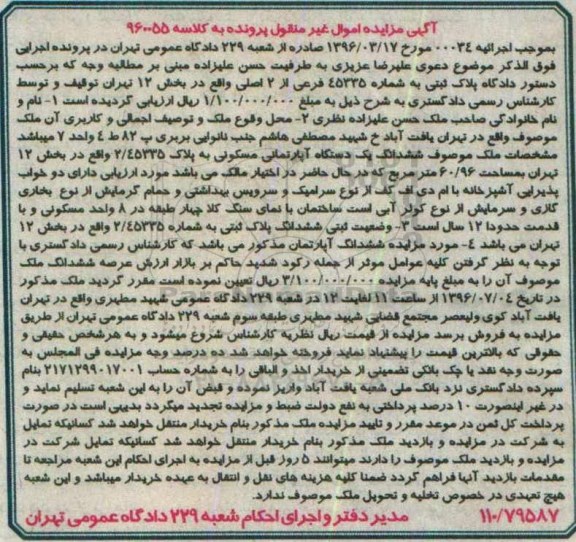 آگهی مزایده اموال غیر منقول پرونده به کلاسه ۹۶۰۰۵۵
بموجب اجرائیه ۰۰۰۳۴ مورخ ۱۳۹۶/۰۳/۱۷ صادره از شعبه ۲۲۹ دادگاه عمومی تهران در پرونده اجرایی
فوق الذکر موضوع دعوی علیرضا عزیزی به طرفیت حسن علیزاده مبنی بر مطالبه وجه که برحسب
دستور دادگاه پلاک ثبتی به شماره ۴۵۳۳۵ فرعی از ۲ اصلی واقع در بخش ۱۲ تهران توقیف و توسط
کارشناس رسمی دادگستری به شرح ذیل به مبلغ ۱/۱۰۰/۰۰۰/۰۰۰ ریال ارزیابی گردیده است ۱- نام و
نام خانوادگی صاحب ملک حسن علیزاده نظری ۲- محل وقوع ملک و توصیف اجمالی و کاربری آن ملک
موصوف واقع در تهران یافت آباد خ شهید مصطفی هاشم جنب نانوایی بربری پ ۸۲ ط ۴ واحد ۷ میباشد
مشخصات ملک موصوف ششدانگ یک دستگاه آپارتمانی مسکونی به پلاک ۲/۴۵۳۳۵ واقع در بخش ۱۲
تهران بمساحت ۶۰/۹۶ متر مربع که در حال حاضر در اختیار مالک می باشد مورد ارزیابی دارای دو خواب
پذیرایی آشپزخانه با ام دی اف کف از نوع سرامیک و سرویس بهداشتی و حمام گرمایش از نوع بخاری
گازی و سرمایش از نوع کولر آبی است ساختمان با نمای سنگ کلا چهار طبقه در ۸ واحد مسکونی و با
قدمت حدودا ۱۲ سال است ۳- وضعیت ثبتی ششدانگ پلاک ثبتی به شماره ۲/۴۵۳۳۵ واقع در بخش ۱۲
تهران می باشد ۴- مورد مزایده ششدانگ آپارتمان مذکور می باشد که کارشناس رسمی دادگستری با
توجه به نظر گرفتن کلیه عوامل موثر از جمله رکود شدید حاکم بر بازار ارزش عرصه ششدانگ ملک
موصوف آن را به مبلغ پایه مزایده ۳/۱۰۰/۰۰۰/۰۰۰ ریال تعیین نموده است مقرر گردید ملک مذکور
در تاریخ ۱۳۹۶/۰۷/۰۴ از ساعت ۱۱ لغایت ۱۲ در شعبه ۲۲۹ دادگاه عمومی شهید مطهری واقع در تهران
یافت آباد کوی ولیعصر مجتمع قضایی شهید مطهری طبقه سوم شعبه ۲۲۹ دادگاه عمومی تهران از طریق
مزایده به فروش برسد مزایده از قیمت ریال نظریه کارشناس شروع میشود و به هرشخص حقیقی و
حقوقی که بالاترین قیمت را پیشنهاد نماید فروخته خواهد شد ده درصد وجه مزایده فی المجلس به
صورت وجه نقد یا چک بانکی تضمینی از خریدار اخذ و الباقی را به شماره حساب ۲۱۷۱۲۹۹۰۱۷۰۰۱ بنام
سپرده دادگستری نزد بانک ملی شعبه یافت آباد واریز نموده و قبض آن را به این شعبه تسلیم نماید و
در غیر اینصورت ۱۰ درصد پرداختی به نفع دولت ضبط و مزایده تجدید میگردد بدیهی است در صورت
پرداخت کل ثمن در موعد مقرر و تایید مزایده ملک مذکور بنام خریدار منتقل خواهد شد کسانیکه تمایل
به شرکت در مزایده و بازدید ملک مذکور بنام خریدار منتقل خواهد شد کسانیکه تمایل شرکت در
مزایده و بازدید ملک موصوف را دارند میتوانند ۵ روز قبل از مزایده به اجرای احکام این شعبه مراجعه تا
مقدمات بازدید آنها فراهم گردد ضمنا کلیه هزینه های نقل و انتقال به عهده خریدار میباشد و این شعبه
هیچ تعهدی در خصوص تخلیه و تحویل ملک موصوف ندارد.
۱۱۰/۷۹۵۸۷ مدیر دفتر و اجرای احکام شعبه ۲۲۹ دادگاه عمومی تهران